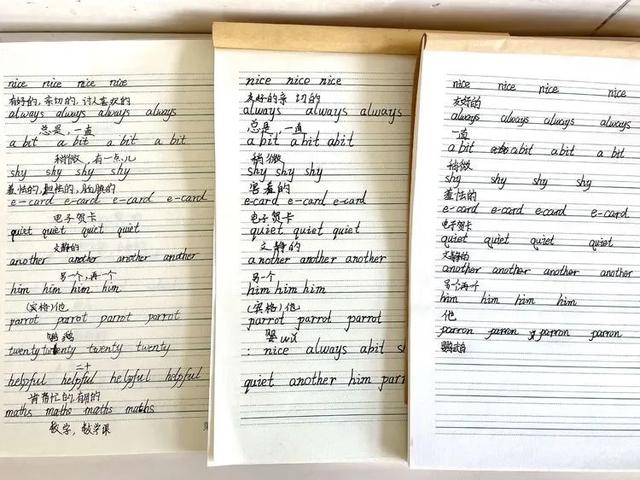 nice nice nice nice
友好的,亲切的,讨人喜欢的
always always always always
总是,一直
a bit a bit a bit a bit
稍微,有一点儿
shy shy shy shy
羞怯的,胆怯的,腼腆的
e-card e-card e-card e-card
电子贺卡
quiet quiet quiet quiet
文静的
another another another another
另一个,再一个
him him him him
(宾格)他
parrot parrot parrot parrot
鹦鹉
twenty twenty twenty twenty
二十
helpful helpful helpful helpful
肯帮忙的,有用的
maths maths maths maths
数学,数学课
nice nice nice
友好的亲切的
always always always
总是,一直
a bit a bit a bit
稍微
shy shy shy
害羞的
e-card e-card e-card
电子贺卡
quiet quiet quiet
文静的
another another another
另一个
him him him
(宾格)他
parrot parrot parrot
: nice always abit s
quiet another him parr
nice nice nice nice
友好的
always always always always
一直
a bit a bit a bit
稍微
shy shy shy shy
羞怯的
e-card e-card e-card e-card
电子贺卡
quiet quiet quiet quiet
文静的
another another another another
另一个再一个
him him him him
他
parron parron parron parron